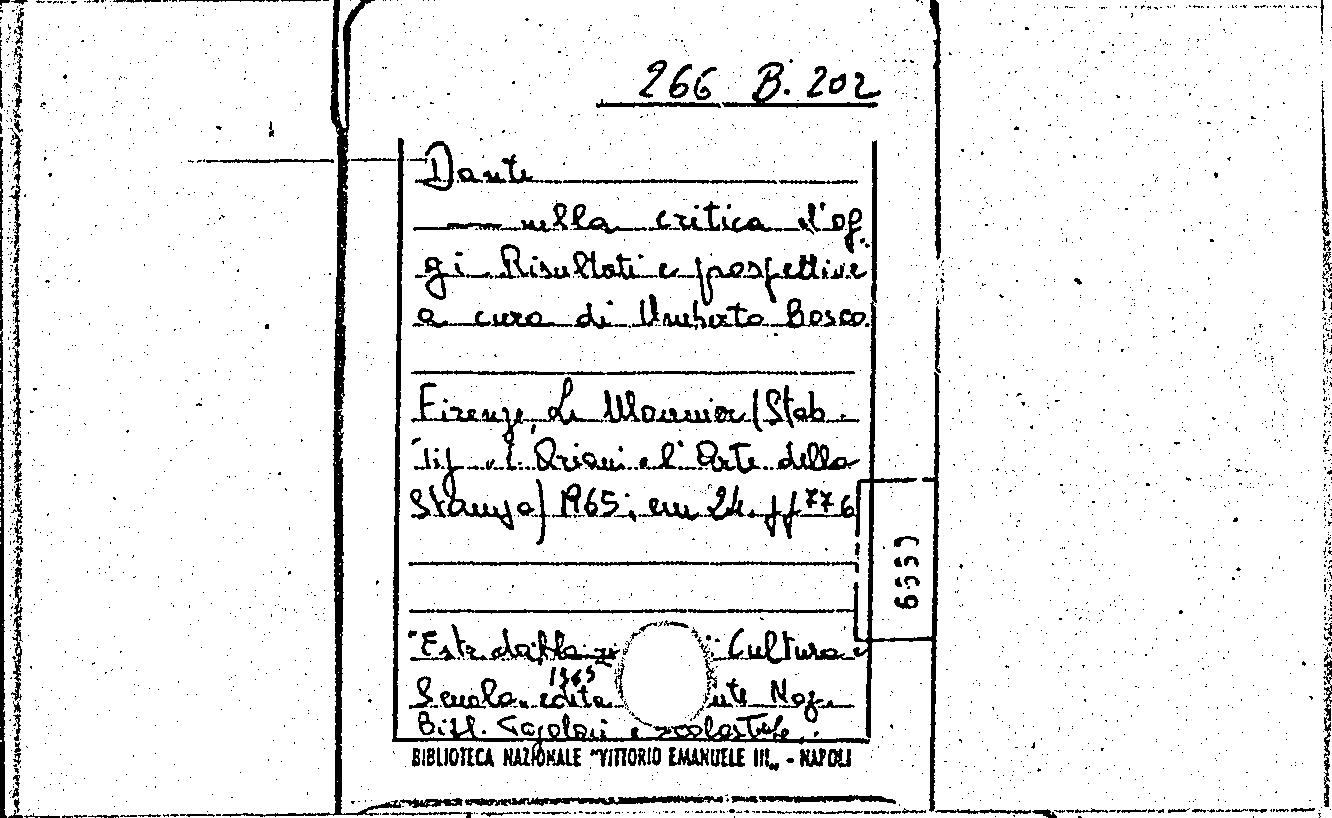 266 B. 202
Dante
—— nella critica d'og-
gi Risultati e prospettive
a cura di Umberto Bosco
Firenze, Le Monnier (Stab.
Tip. E. Ariani e l'Arte della
Stampa) 1965; in 24. pp 776
"Estr. dalla Cultura e
Scuola. 1965 edita Ente Naz.
Bibl. Popolari e scolastiche.
6559
BIBLIOTECA NAZIONALE "VITTORIO EMANUELE III„ - NAPOLI